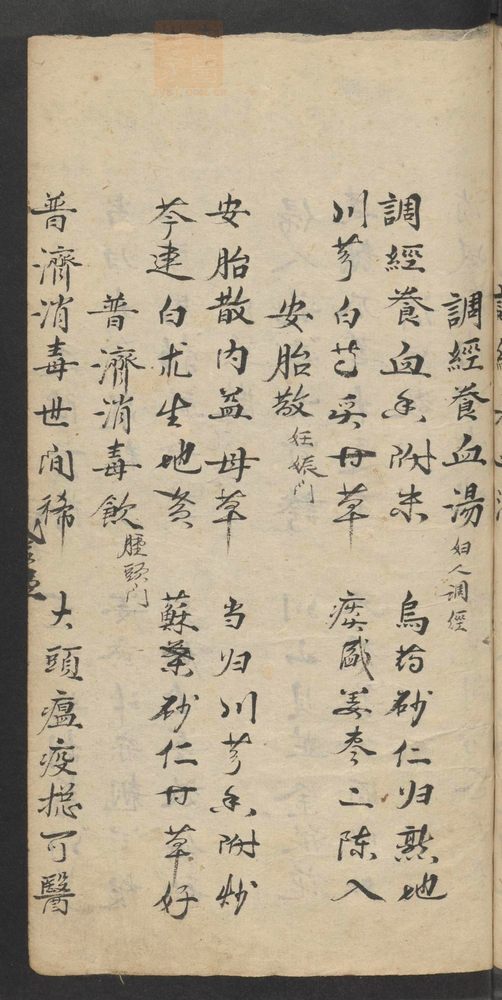 調經養血湯 妇人調經
調經養血香附朱 烏药砂仁归熟地
川芎白芍奚丹草 痰盛姜枣二陈入
安胎散 妊娠门
安胎散内益母草 当归川芎香附炒
芩連白朮生地黄 蘇葉砂仁甘草好
普濟消毒飲 腫頭门
普濟消毒世间稀 大頭瘟疫揔可醫